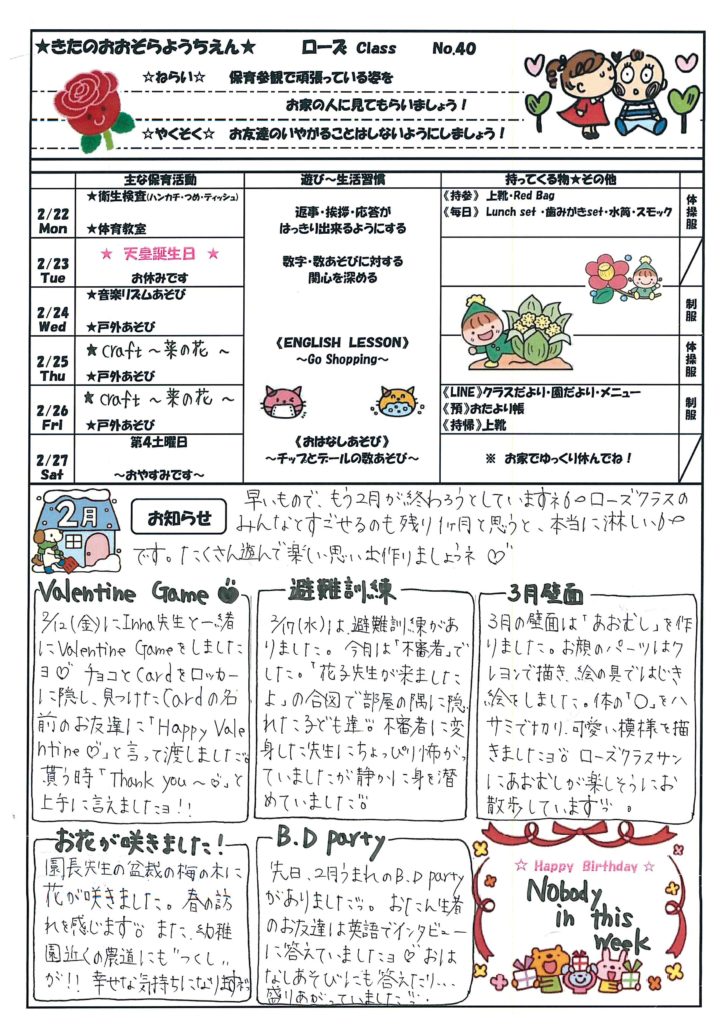 ★きたのおおぞらようちえん★ ローズ Class No.40
☆ねらい☆ 保育参観で頑張っている姿を
お家の人に見てもらいましょう！
☆やくそく☆ お友達のいやがることはしないようにしましょう！
主な保育活動 遊び～生活習慣 持ってくる物★その他
2/22 Mon
★衛生検査(ハンカチ・つめ・ティッシュ)
★体育教室
返事・挨拶・応答が
はっきり出来るようにする
《持参》 上靴・Red Bag
《毎日》 Lunch set ・歯みがきset・水筒・スモック
体操服
2/23 Tue
★ 天皇誕生日 ★
お休みです
数字・数あそびに対する
関心を深める
2/24 Wed
★音楽リズムあそび
★戸外あそび
制服
2/25 Thu
★craft ～菜の花 ～
★戸外あそび
《ENGLISH LESSON》
～Go Shopping～
体操服
2/26 Fri
★craft ～菜の花 ～
★戸外あそび
《LINE》クラスだより・園だより・メニュー
《預》おたより帳
《持帰》上靴
制服
2/27 Sat
第4土曜日
～おやすみです～
《おはなしあそび》
～チップとデールの数あそび～
※ お家でゆっくり休んでね！
2月
お知らせ
早いもので、もう2月が終わろうとしていますネ ローズクラスの
みんなとすごせるのも残り1ヶ月と思うと、本当に淋しい
です。たくさん遊んで楽しい思い出作りましょうネ♡
Valentine Game
2/12(金)にInna先生と一緒
にValentine Gameをしました
ヨ♡ チョコとCardをロッカー
に隠し、見つけたCardの名
前のお友達に「Happy Vale
ntine♡」と言って渡しました。
貰う時「Thank you～♡」と
上手に言えましたヨ！！
避難訓練
2/17(水)は、避難訓練があ
りました。今月は「不審者」で
した。「花子先生が来ました
よ」の合図で部屋の隅に隠
れた子ども達。不審者に変
身した先生にちょっぴり怖がっ
ていましたが静かに身を潜
めていました
3月壁面
3月の壁面は「あおむし」を作
りました。お顔のパーツはク
レヨンで描き、絵の具ではじき
絵をしました。体の「○」をハ
サミで切り、可愛い模様を描
きましたヨ ローズクラスサン
にあおむしが楽しそうにお
散歩しています。
お花が咲きました！
園長先生の盆栽の梅の木に
花が咲きました。春の訪
れを感じます また、幼稚
園近くの農道にも"つくし"
が!! 幸せな気持ちになります
B.D party
先日、2月うまれのB.D party
がありました。おたん生者
のお友達は英語でインタビュー
に答えていましたヨ♡おは
なしあそびにも答えたり…
盛りあがっていました
☆ Happy Birthday ☆
Nobody
in this
week